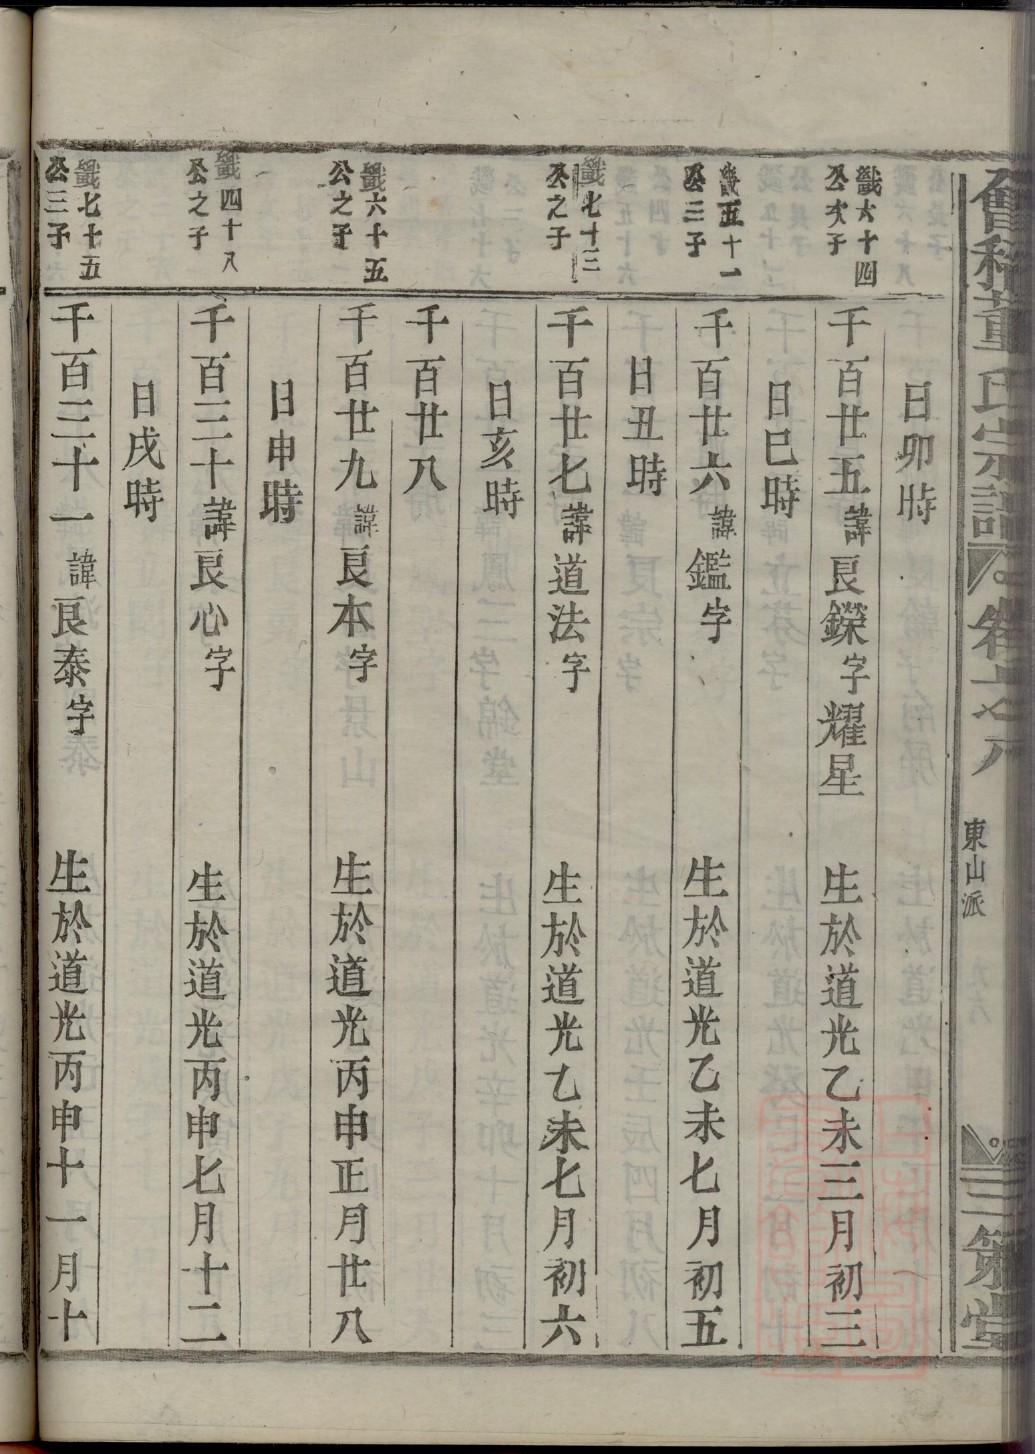 會稽董氏宗譜
東山派
三策堂
日卯時
戩六十四
公次子
千百廿五諱良鑅字耀星 生於道光乙未三月初三
日巳時
戩五十一
公三子
千百廿六諱鑑字 生於道光乙未七月初五
日丑時
戩七十三
公之子
千百廿七諱道法字 生於道光乙未七月初六
日亥時
千百廿八
戩六十五
公之子
千百廿九諱良本字 生於道光丙申正月廿八
日申時
戩四十八
公之子
千百三十諱良心字 生於道光丙申七月十二
日戌時
戩七十五
公三子
千百三十一諱良泰字 生於道光丙申十一月十